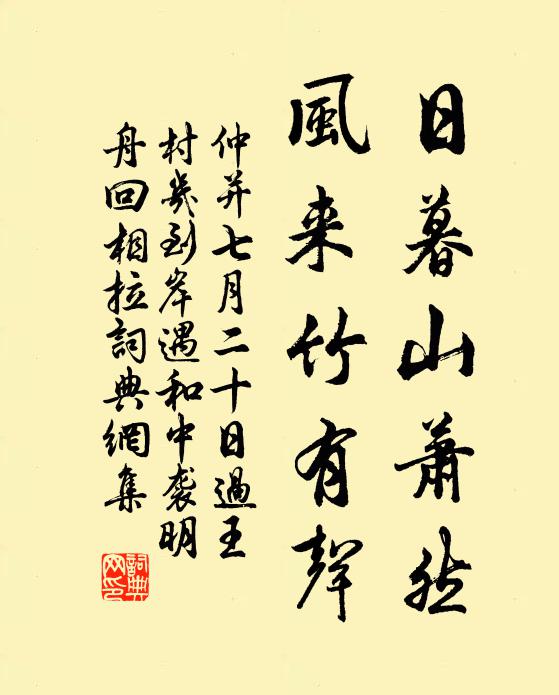 日暮山蕭然
風来竹有聲
仲并七月二十日過王
村幾到岸遇和中袭明
舟回相拉詞典網集
詞典網印